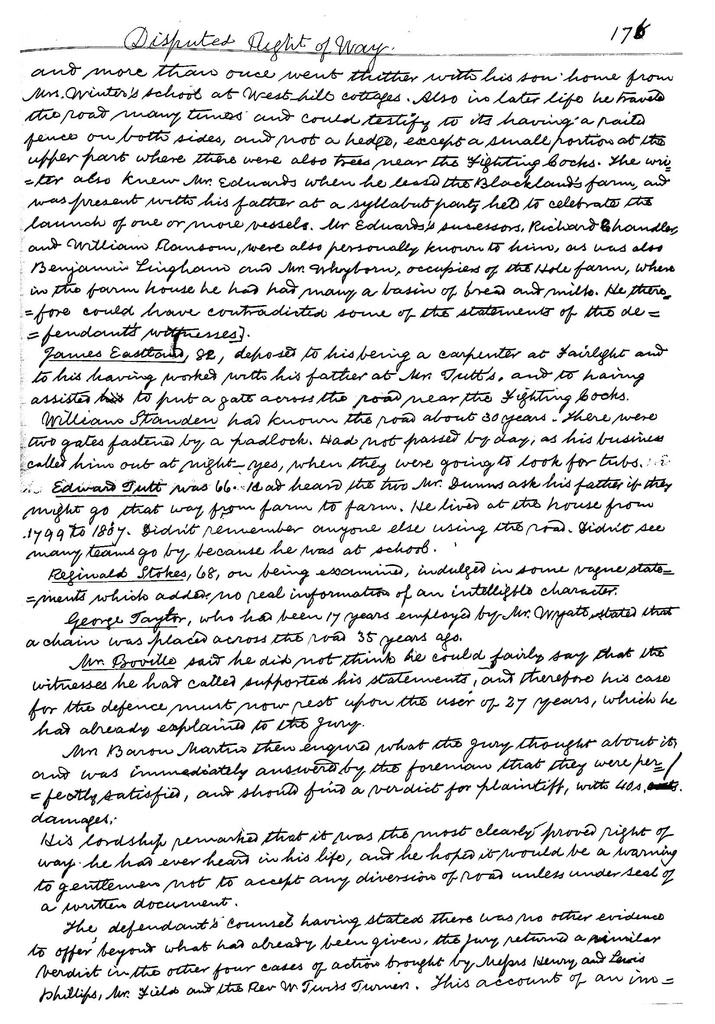 Disputed Right of Way. 176
and more than once went thither with his son home from
Mrs. Winter's school at West-hill cottages. Also in later life he traveld
the road many times and could testify to its having a raild
fence on both sides, and not a hedge, except a small portion at the
upper part where there were also trees near the Fighting Cocks. The wri=
=ter also knew Mr. Edwards when he leasd the Blackland's farm, and
was present with his father at a syllabub party held to celebrate the
launch of one or more vessels. Mr Edwards's successors, Richard Chandler
and William Ransom, were also personally known to him, as was also
Benjamin Lingham and Mr. Whyborn, occupiers of the Hole farm, where
in the farm house he had had many a basin of bread and milk. He there=
=fore could have contradicted some of the statements of the de=
=fendant's witnesses].
James Eastland, 82, deposed to his being a carpenter at Fairlight and
to his having worked with his father at Mr. Tutt's, and to having
assisted to put a gate across the road near the Fighting Cocks.
William Standen had known the road about 30 years. There were
two gates fastened by a padlock. Had not passed by day, as his business
called him out at night—yes, when they were going to look for tubs.
Edward Tutt was 66. Had heard the two Mr. Dunns ask his father if they
might go that way from farm to farm. He lived at the house from
1799 to 1807. Didn't remember anyone else using the road. Didn't see
many teams go by because he was at school.
Reginald Stokes, 68, on being examined, indulged in some vague state=
=ments which added no real information of an intelligble character.
George Taylor, who had been 17 years employed by Mr. Wyatt, stated that
a chain was placed across the road 35 years ago.
Mr. Boville said he did not think he could fairly say that the
witnesses he had called supported his statements, and therefore his case
for the defence must now rest upon the user of 27 years, which he
had already explained to the Jury.
Mr. Baron Martin then enquired what the Jury thought about it,
and was immediately answerd by the foreman that they were per=
=fectly satisfied, and should find a verdict for plaintiff, with 40s.
damages.
His lordship remarked that it was the most clearly proved right of
way he had ever heard in his life, and he hoped it would be a warning
to gentlemen not to accept any diversion of road unless under seal of
a written document.
The defendant's counsel having stated there was no other evidence
to offer beyond what had already been given, the Jury returned a similar
verdict in the other four cases of action brought by Messrs Henry and Lewis
Phillips, Mr. Field and the Rev W. Twiss Turner. This account of an in=